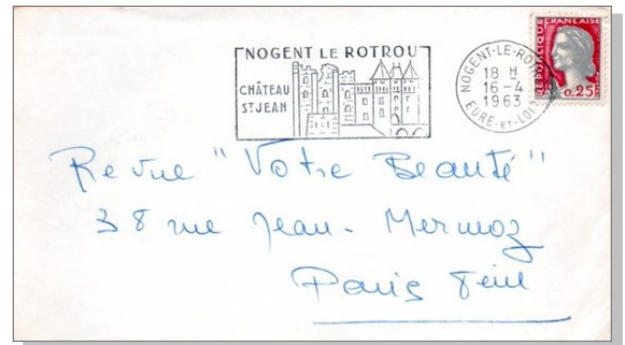 NOGENT LE ROTROU
CHÂTEAU
ST JEAN
NOGENT-LE-RO
18 H
16-4
1963
EURE-ET-LOI
REPUBLIQUE FRANCAISE
0.25
Revue "Votre Beauté"
38 rue Jean-Mermoz
Paris 8eme